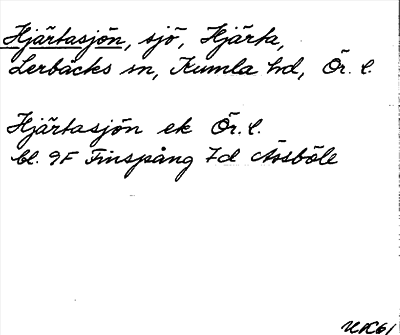 Hjärtasjön, sjö, Hjärta,
Lerbäcks sn, Kumla hd, Ör. l.
Hjärtasjön ek Ör. l.
bl. 9F Finspång 7d Åsböle